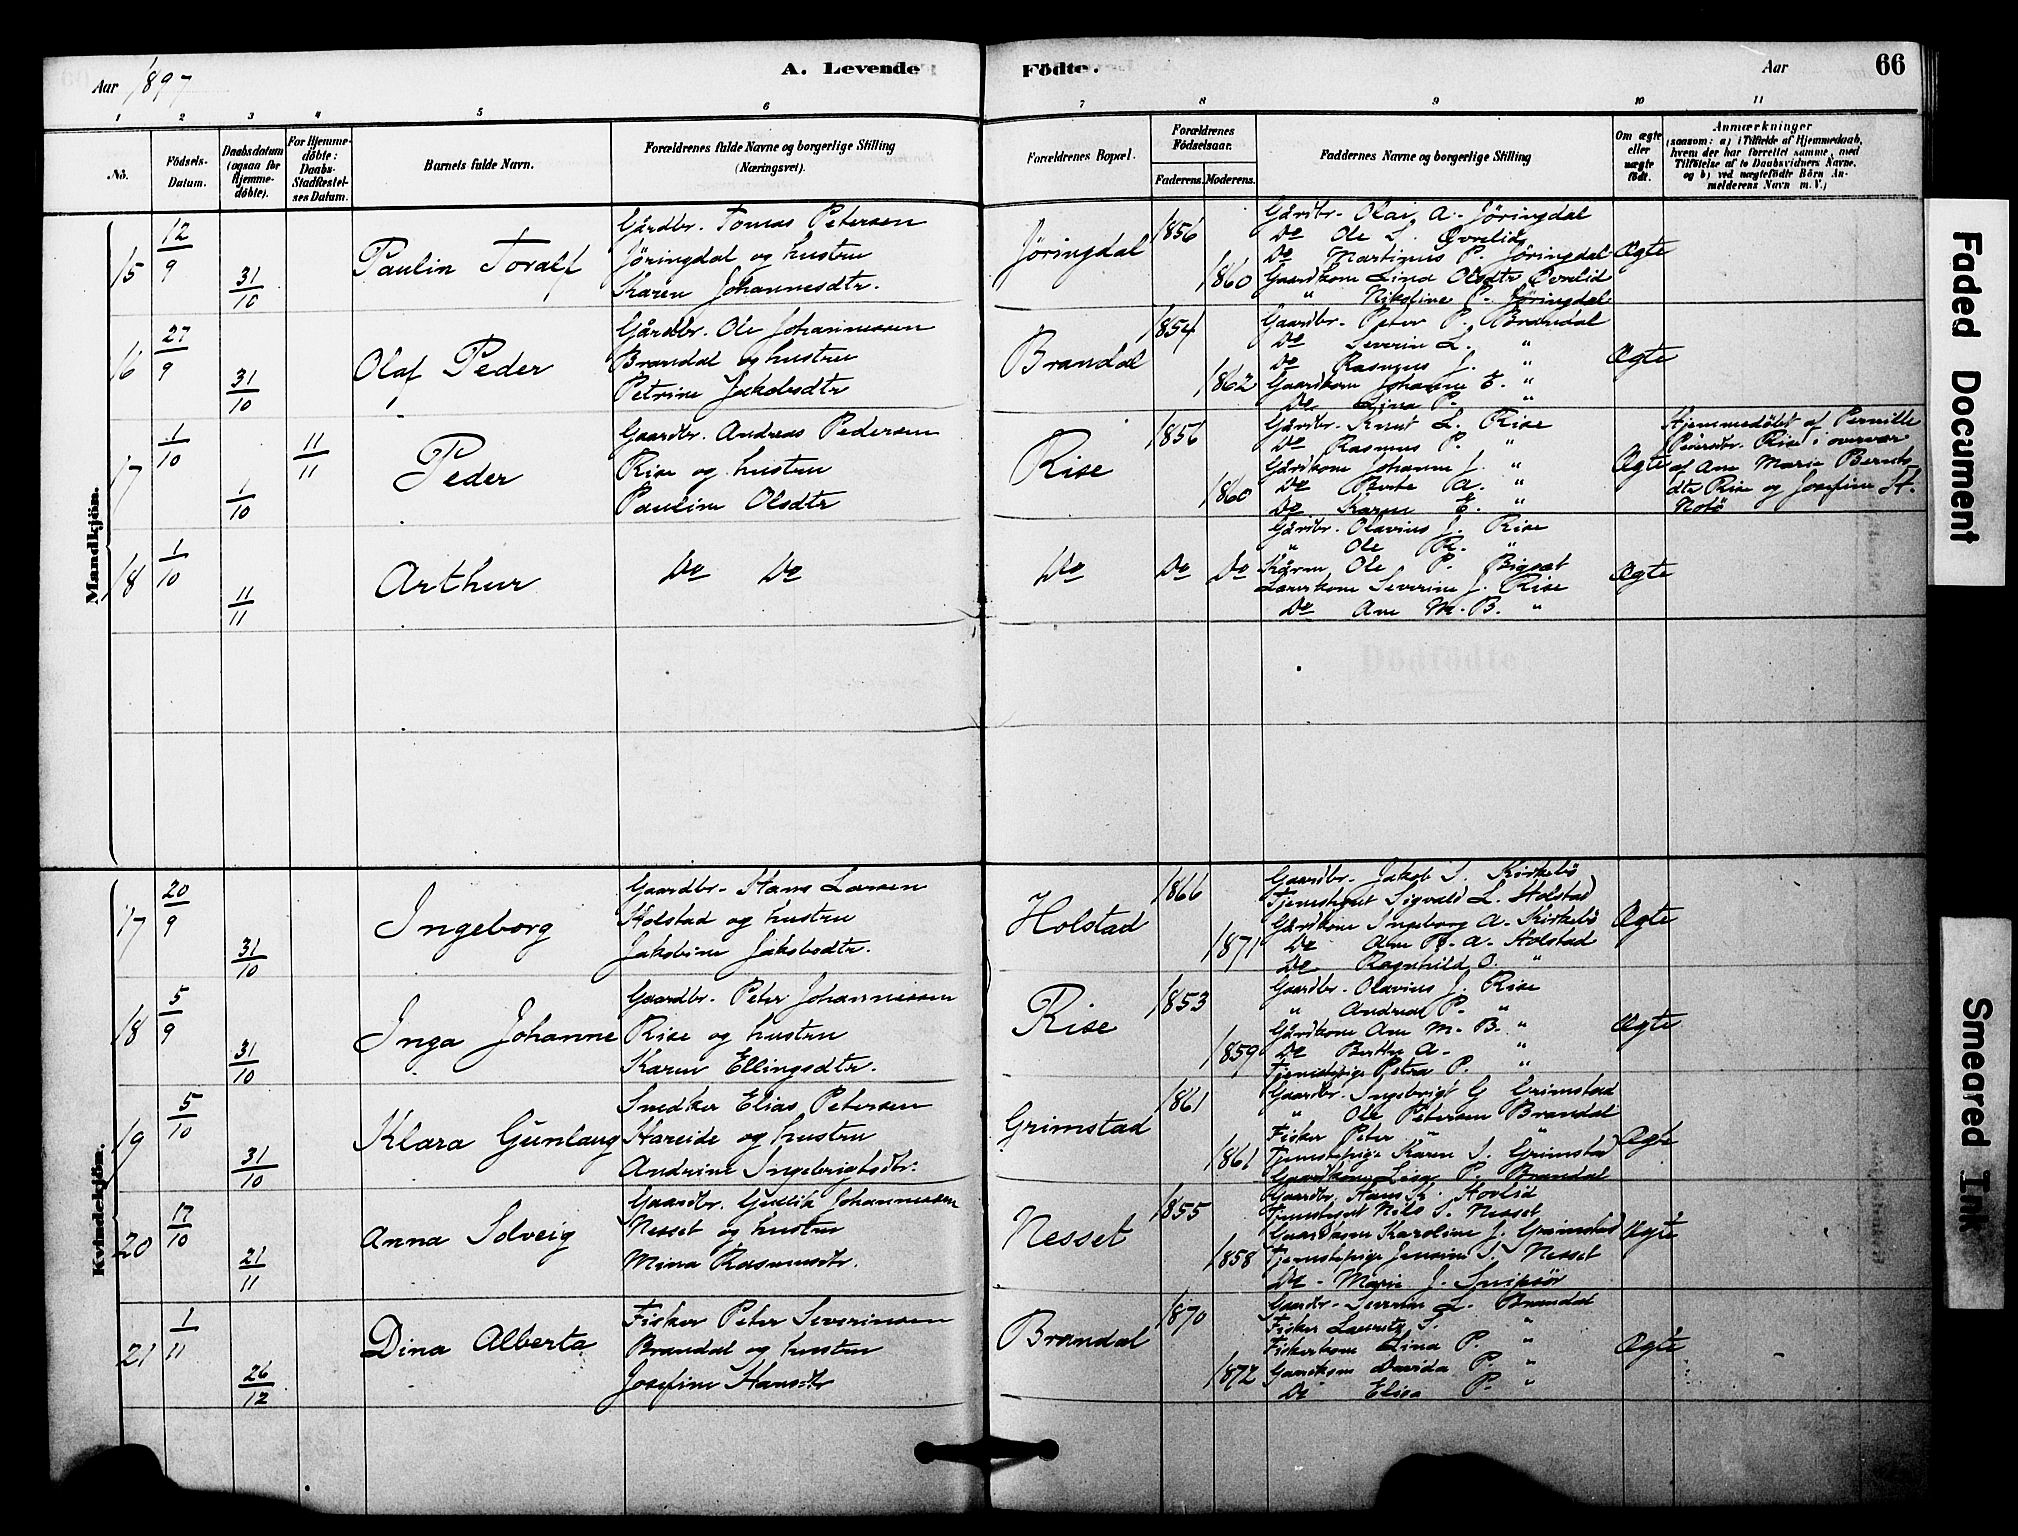 Aar 1897
A. Levende
Födte.
Aar
66
1 2 3 4 5 6 7 8 9 10 11
No.
Födsels-Datum.
Daabsdatum (ogsaa for Hjemmedöbte).
For Hjemmedöbte: Daabs-Stadfæstelses Datum.
Barnets fulde Navn.
Forældrenes fulde Navne og borgerlige Stilling (Næringsvei).
Forældrenes Bopæl.
Forældrenes Födselsaar.
Faderens. Moderens.
Faddernes Navne og borgerlige Stilling
Om ægte eller uægte födt.
Anmærkninger
(saasom: a) i Tilfælde af Hjemmedaab, hvem der har forrettet samme, med Tilföielse af to Daabsvidners Navne, og b) ved uægtefödte Börn Anmelderens Navn m. V.)
Mandkjön.
15
12/9
31/10
Paulin Toralf
Gårdbr. Tomas Petersen
Jøringdal og hustru
Karen Johannesdtr.
Jøringdal
1856
1860
Gårdbr. Olai A. Jøringdal
Do Ole L. Øvrelid
Do Martinus P. Jøringdal
Gaardkone Lina Olsdtr Øvrelid
" Nikoline P. Jøringdal
Ægte
16
27/9
31/10
Olaf Peder
Gårdbr. Ole Johannessen
Brandal og hustru
Petrine Jakobsdtr
Brandal
1854
1862
Gaardbr. Peter P. Brandal
Do Severin L. "
Do Rasmus J. "
Gaardkone Johanne E. "
Do Lina P. "
Ægte
17
1/10
1/10
11/11
Peder
Gaardbr. Andreas Pedersen
Rise og hustru
Pauline Olsdtr
Rise
1856
1860
Gårdbr. Knut L. Rise
Do Rasmus P. "
Gårdkone Johanne J. "
Do Berte A. "
Do Karen E. "
Ægte
Hjemmedøbt af Pernille
Rise i overvær
af Ane Marie Bernts
dtr Rise og Josefine H.
Notø
18
1/10
11/11
Arthur
Do Do
Do
Do Do
Gårdbr. Olavius J. Rise
" Ole R. "
Ole P. Bigset
Severine J. Rise
Do Ane M. B. "
Ægte
Kvindekjön.
17
20/9
31/10
Ingeborg
Gaardbr. Hans Larsen
Holstad og hustru
Jakobine Jakobsdtr.
Holstad
1866
1871
Gaardbr. Jakob S. Kirkebø
Tjenestegut Sigvald L. Holstad
Gårdkone Ingeborg A. Kirkebø
Do Ane A. Holstad
Do Ragnhild O. "
Ægte
18
5/9
31/10
Inga Johanne
Gaardbr. Peter Johannessen
Rise og hustru
Karen Ellingsdtr.
Rise
1853
1859
Gaardbr. Olavius J. Rise
" Andreas P. "
Gårdkone Ane M. B. "
Do Berthe A. "
Tjenestepige Petra P. "
Ægte
19
5/10
31/10
Klara Gunlaug
Snedker Elias Petersen
Hareide og hustru
Andrine Ingebrigtsdtr.
Grimstad
1861
1861
Gaardbr. Ingebrigt G Grimstad
" Ole Petersen Brandal
Fisker Peter " "
Tjenestepige Karen S. Grimstad
Gaardkone Lisa P. Brandal
Ægte
20
17/10
21/11
Anna Solveig
Gaardbr. Gullik Johannessen
Nesset og hustru
Mina Rasmusdtr.
Nesset
1855
1858
Gaardbr. Hans K. Hovlid
Tjenestegut Nils S. Nesset
Gaardkone Karoline J. Grimstad
Tjenestepige Jensine S. Nesset
Do - Marie J. Snipsør
Ægte
21
1/11
26/12
Dina Alberta
Fisker Peter Severinsen
Brandal og hustru
Josefine Hansdtr
Brandal
1870
1872
Gaardbr. Severin L. Brandal
Fisker Lauritz S. "
Fiskerkone Lina P. "
Gaardkone Davida P. "
Do Elisa P. "
Ægte
Faded Document
Smeared Ink